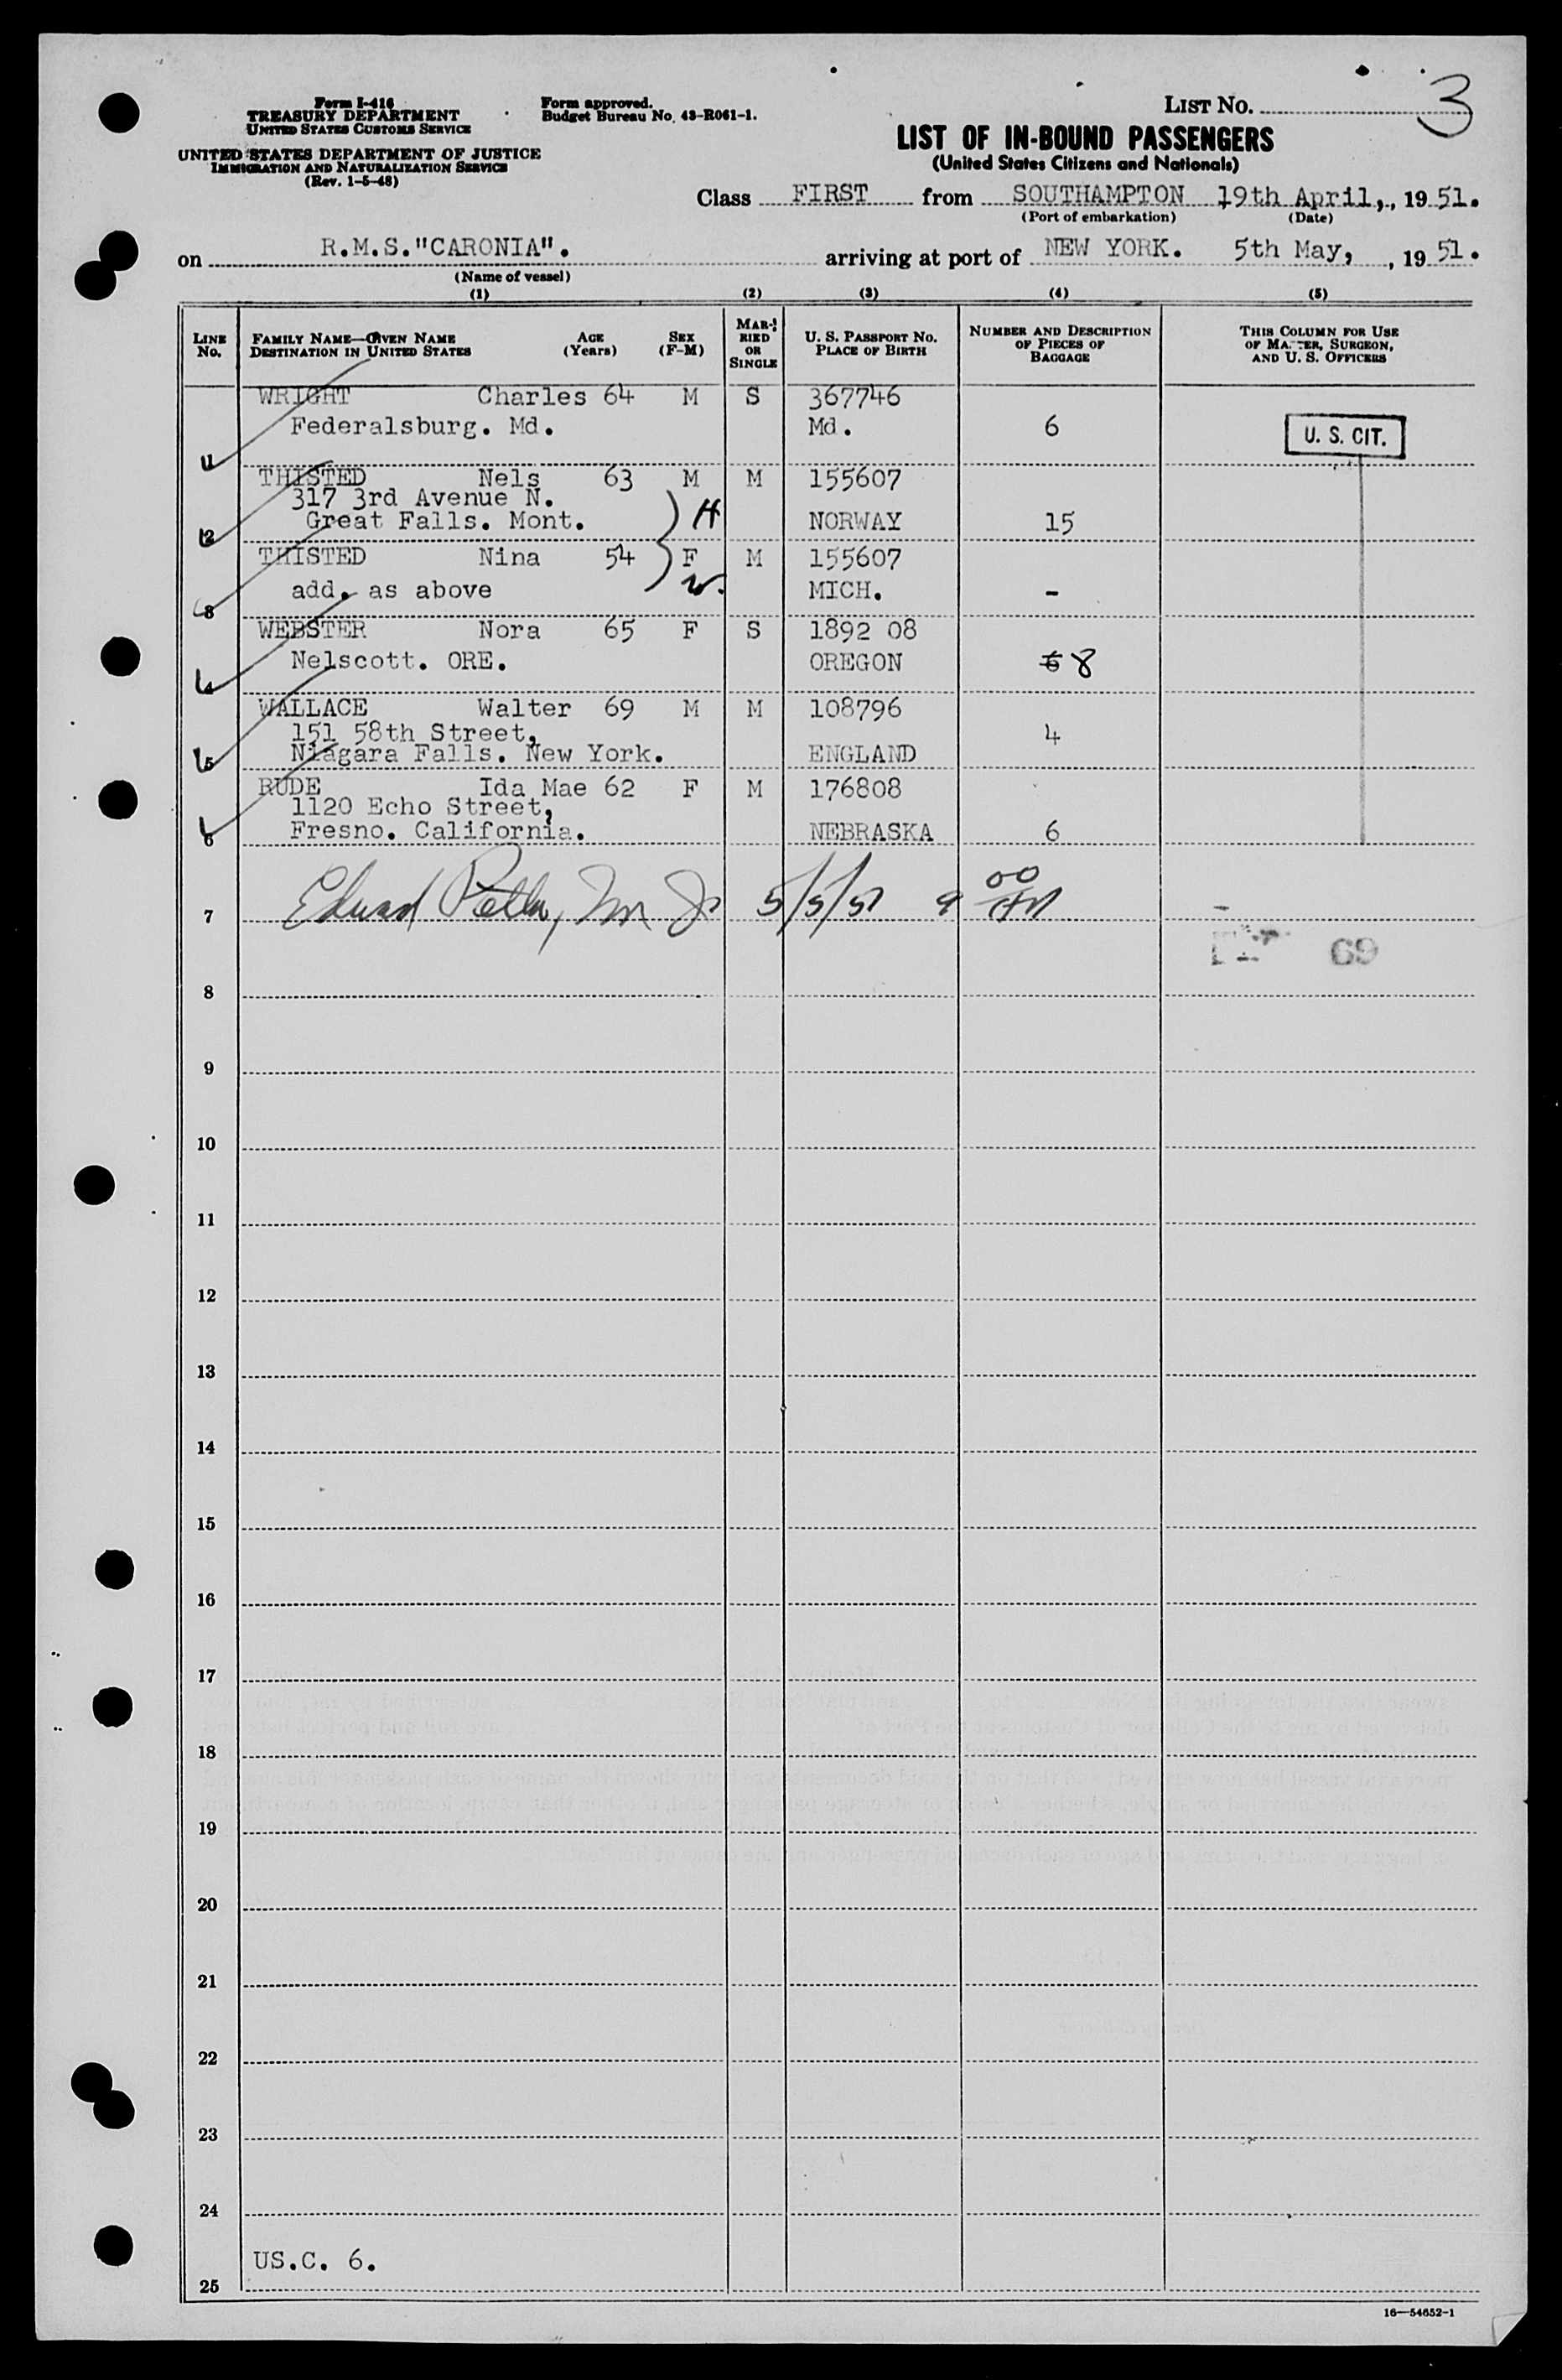 Form I-416
TREASURY DEPARTMENT
UNITED STATES CUSTOMS SERVICE
UNITED STATES DEPARTMENT OF JUSTICE
IMMIGRATION AND NATURALIZATION SERVICE
(Rev. 1-5-48)
Form approved.
Budget Bureau No. 43-R061-1.
LIST No. 3
LIST OF IN-BOUND PASSENGERS
(United States Citizens and Nationals)
Class FIRST from SOUTHAMPTON 19th April,, 19 51.
(Port of embarkation) (Date)
on R.M.S."CARONIA". arriving at port of NEW YORK. 5th May, , 19 51.
(Name of vessel)
(1) (2) (3) (4) (5)
LINE No. FAMILY NAME—GIVEN NAME DESTINATION IN UNITED STATES AGE (Years) SEX (F-M) MARRIED OR SINGLE U. S. PASSPORT No. PLACE OF BIRTH NUMBER AND DESCRIPTION OF PIECES OF BAGGAGE THIS COLUMN FOR USE OF MASTER, SURGEON, AND U. S. OFFICERS
WRIGHT Charles 64 M S 367746
Federalsburg. Md. Md. 6 U. S. CIT.
1
THISTED Nels 63 M M 155607
317 3rd Avenue N.
Great Falls. Mont. H NORWAY 15
2
THISTED Nina 54 F M 155607
add. as above W. MICH. -
3
WEBSTER Nora 65 F S 1892 08
Nelscott. ORE. OREGON 6 8
4
WALLACE Walter 69 M M 108796
151 58th Street, 4
Niagara Falls. New York. ENGLAND
5
RUDE Ida Mae 62 F M 176808
1120 Echo Street,
Fresno. California. NEBRASKA 6
6
7 5/5/51 9 00
69
8
9
10
11
12
13
14
15
16
17
18
19
20
21
22
23
24
US.C. 6.
25
16—54652-1